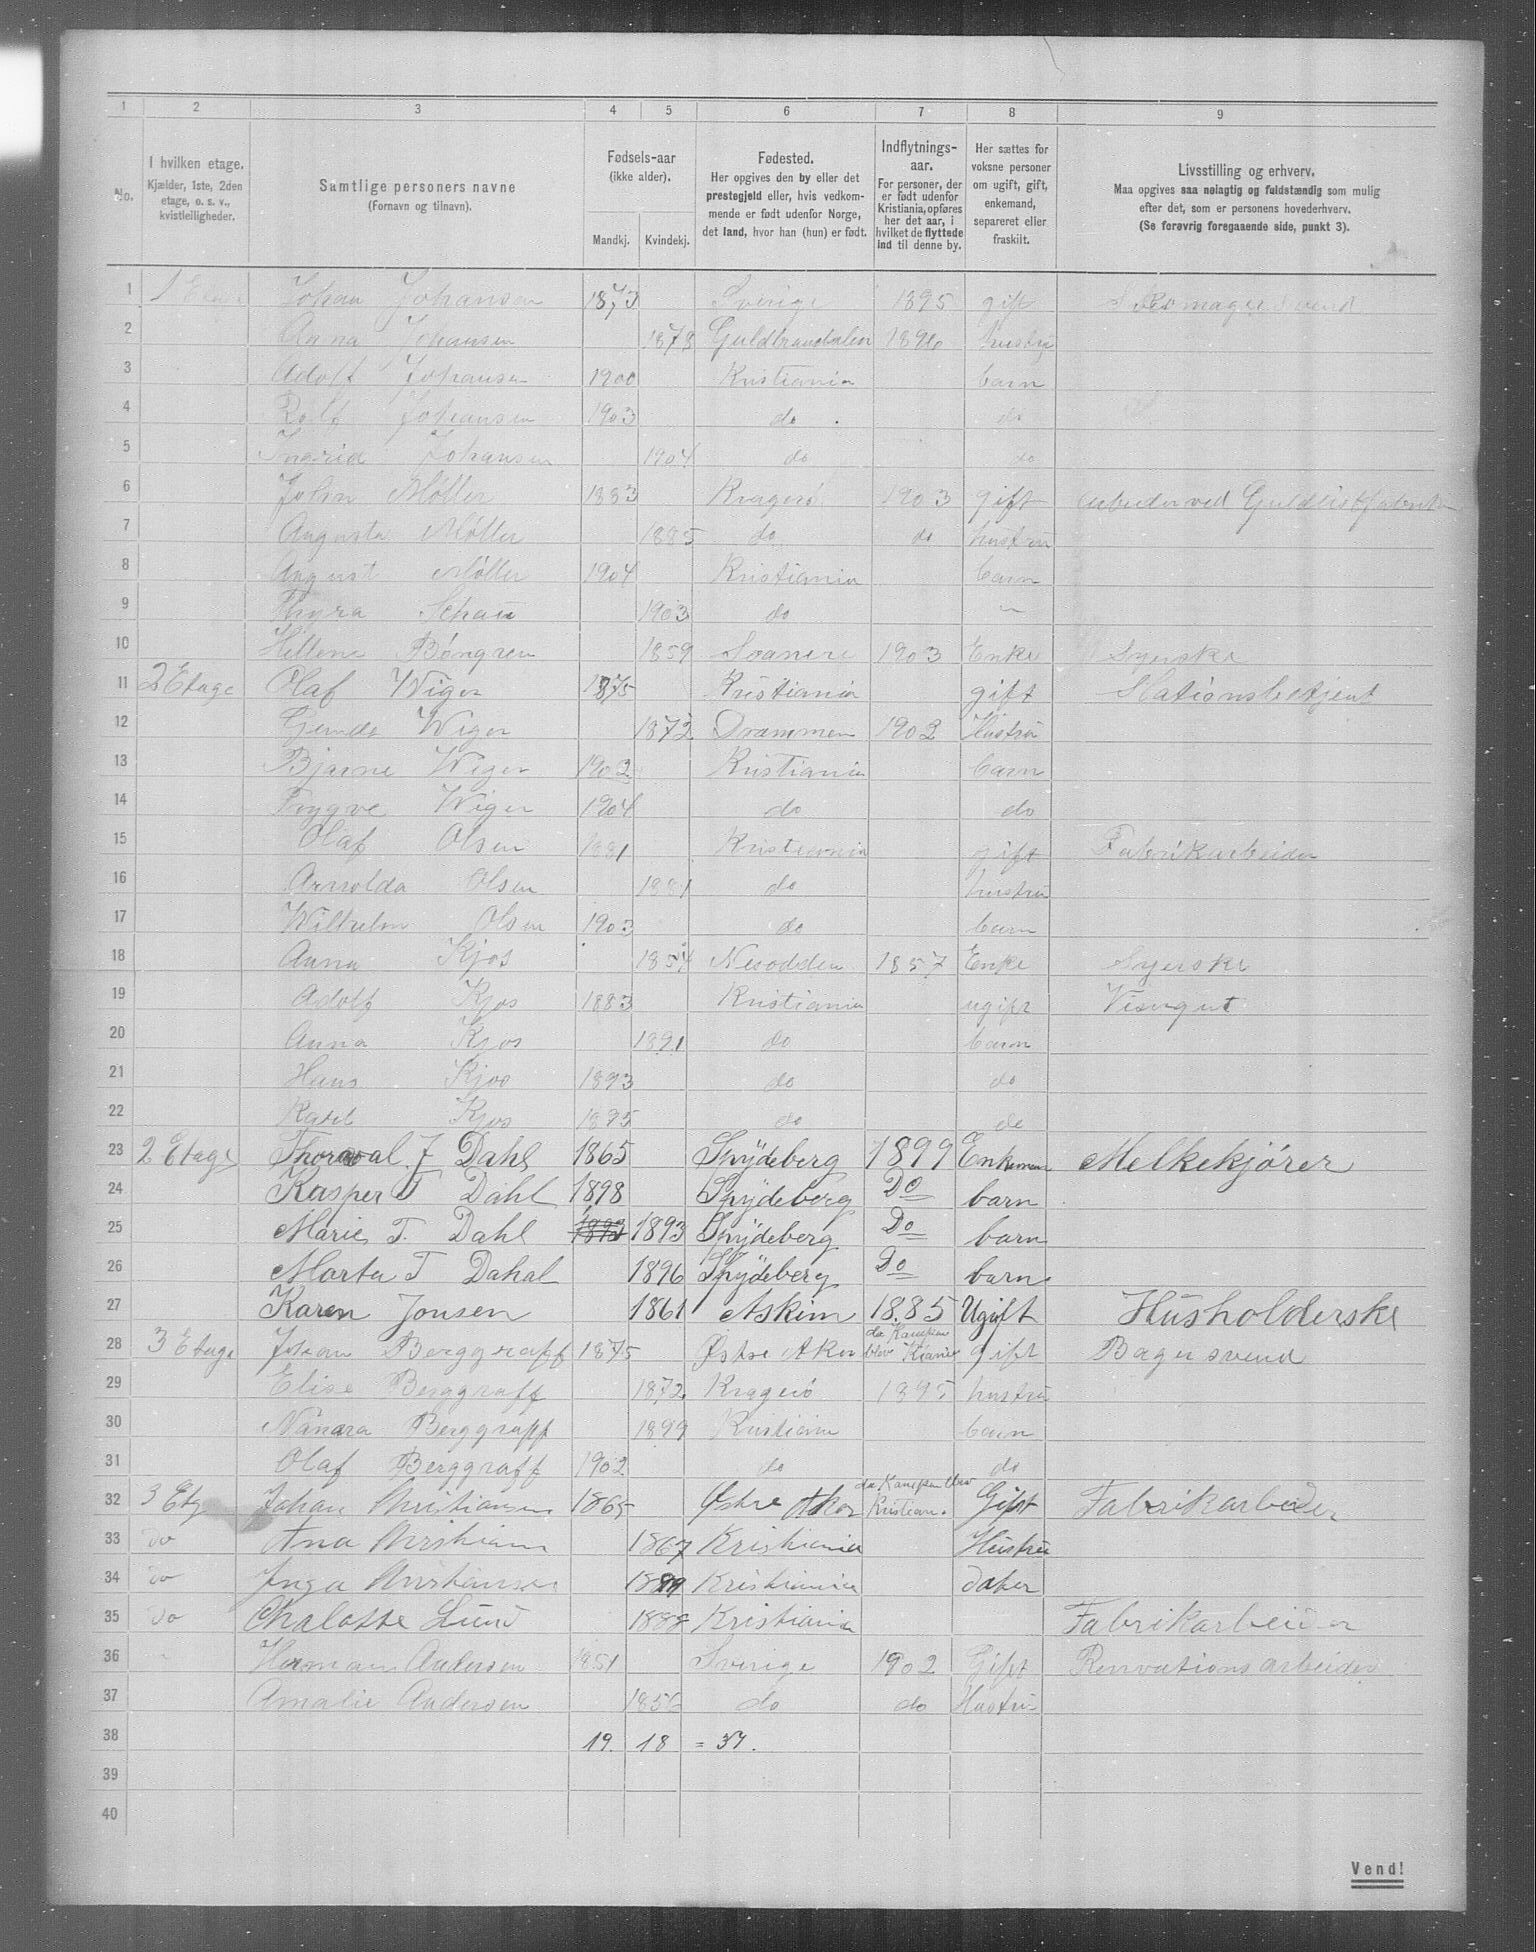 1 2 3 4 5 6 7 8 9
No.
I hvilken etage.
Kjælder, 1ste, 2den
etage, o. s. v.,
kvistleiligheder.
Samtlige personers navne
(Fornavn og tilnavn).
Fødsels-aar
(ikke alder).
Mandkj. Kvindekj.
Fødested.
Her opgives den by eller det
prestegjeld eller, hvis vedkom-
mende er født udenfor Norge,
det land, hvor han (hun) er født.
Indflytnings-
aar.
For personer, der
er født udenfor
Kristiania, opføres
her det aar, i
hvilket de flyttede
ind til denne by.
Her sættes for
voksne personer
om ugift, gift,
enkemand,
separeret eller
fraskilt.
Livsstilling og erhverv.
Maa opgives saa nøiagtig og fuldstændig som mulig
efter det, som er personens hovederhverv.
(Se forøvrig foregaaende side, punkt 3).
1 1 Etage Johan Johansen 1873 Sverige 1895 gift Skomagersvend
2 Anna Johansen 1873 Guldbrandsdalen 1896 hustru
3 Adolf Johansen 1900 Kristiania barn
4 Rolf Johansen 1903 do do
5 Ingrid Johansen 1904 do do
6 John Møller 1883 Kragerø 1903 gift Arbeider ved Guldlistfabrik
7 Augusta Møller 1885 do do hustru
8 August Møller 1904 Kristiania barn
9 Thyra 1903 do "
10 Hellene Bøngren 1859 1903 Enke Syerske
11 2 Etage Olaf Wiger 1875 Kristiania gift Stationsbetjent
12 Wiger 1872 Drammen 1902 Hustru
13 Bjarne Wiger 1902 Kristiania barn
14 Trygve Wiger 1904 do do
15 Olaf Olsen 1881 Kristiania gift Fabrikarbeider
16 Arnolda Olsen 1881 do hustru
17 Wilhelm Olsen 1903 do barn
18 Anna Kjos 1854 Nesodden 1857 Enke Syerske
19 Adolf Kjos 1883 Kristiania ugift Visergut
20 Anna Kjos 1891 do barn
21 Hans Kjos 1893 do do
22 Karl Kjos 1895 do do
23 2 Etage Thorvval J Dahl 1865 Spydeberg 1899 Enkeman Melkekjører
24 Kasper T Dahl 1898 Spydeberg Do barn
25 Marie T. Dahl 1893 Spydeberg Do barn
26 Marta T Dahal 1896 Spydeberg Do barn
27 Karen Jonsen 1861 Askim 1885 Ugift Husholderske
28 3 Etage Johan Berggraff 1875 Østre Aker da Kampen blev Kiania gift Bagersvend
29 Elise Berggraff 1872 Kragerø 1895 hustru
30 Nanara Berggraff 1899 Kristiania barn
31 Olaf Berggraff 1902 do do
32 3 Etg Johan Kristiansen 1865 Østre Aker da Kampen blev Kristian. Gift Fabrikarbeider
33 do Ana Kristians 1867 Kristiania Hustru
34 do Inga Kristiansen 1899 Kristiania dater
35 do Chalotte Lund 1888 Kristiania Fabrikarbeider
36 " Herman Andersen 1851 Sverige 1902 Gift Renvationsarbeider
37 Amalie Andersen 1856 do do Hustru
38 19. 18 = 37.
39
40
Vend!